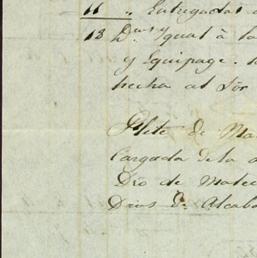 11 " Entregadas
13 D.^mos y qual à la
y Equipage.
hecha al Sõr
Flete de Ma
Cargada de la
Dro de Mate
Drõs D. Alcaba